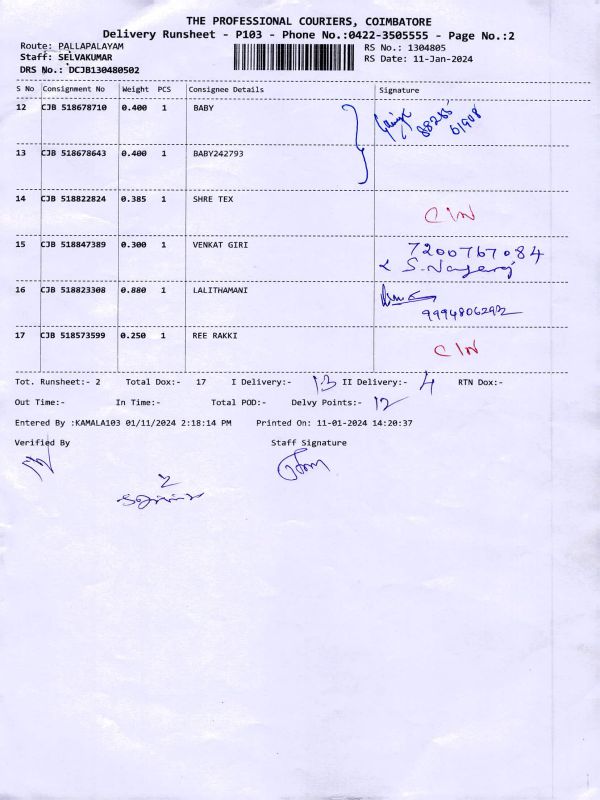 THE PROFESSIONAL COURIERS, COIMBATORE
Delivery Runsheet - P103 - Phone No.:0422-3505555 - Page No.:2
Route: PALLAPALAYAM RS No.: 1304805
Staff: SELVAKUMAR RS Date: 11-Jan-2024
DRS No.: DCJB130480502
S No Consignment No Weight PCS Consignee Details Signature
12 CJB 518678710 0.400 1 BABY 88255
61908
13 CJB 518678643 0.400 1 BABY242793
14 CJB 518822824 0.385 1 SHRE TEX CIN
15 CJB 518847389 0.300 1 VENKAT GIRI 7200767084
S. Nageraj
16 CJB 518823308 0.880 1 LALITHAMANI
9994806292
17 CJB 518573599 0.250 1 REE RAKKI CIN
Tot. Runsheet:- 2 Total Dox:- 17 I Delivery:- 13 II Delivery:- 4 RTN Dox:-
Out Time:- In Time:- Total POD:- Delvy Points:- 12
Entered By :KAMALA103 01/11/2024 2:18:14 PM Printed On: 11-01-2024 14:20:37
Verified By Staff Signature